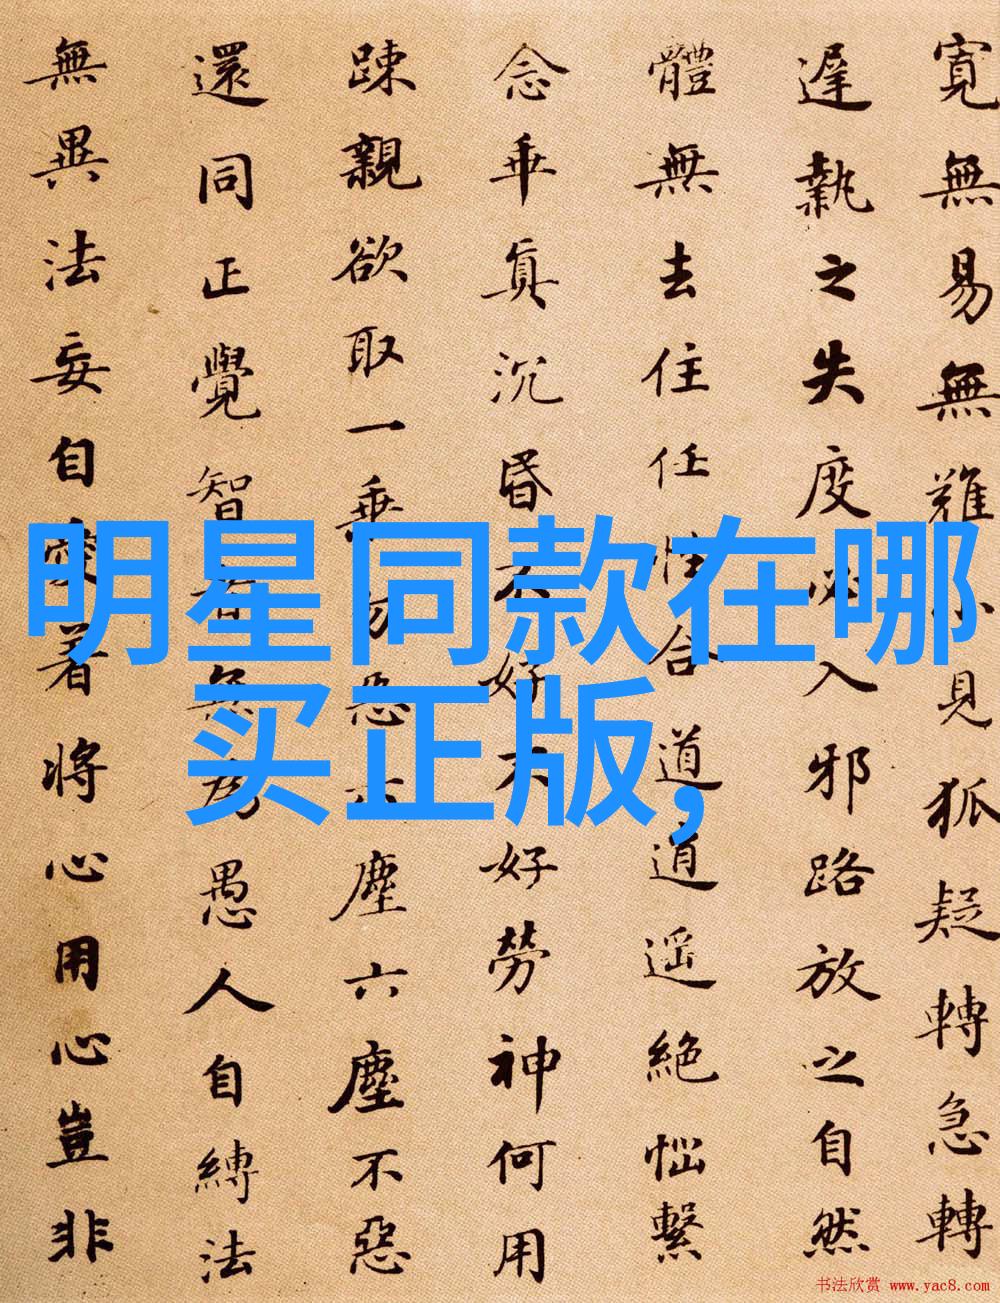 寬無易無難小見狐疑轉急轉
遲執之失度必入邪路放之自然
體無去住任性合道逍遥絕惱繫
念乖真沉昏不好不好勞神何用
踈親欲取一乘勿惡六塵六塵不惡
還同正覺智者無為愚人自縛法
無異法妄自愛著將心用心豈非
明星同款在哪
买正版,
书法欣赏 www.yac8.com